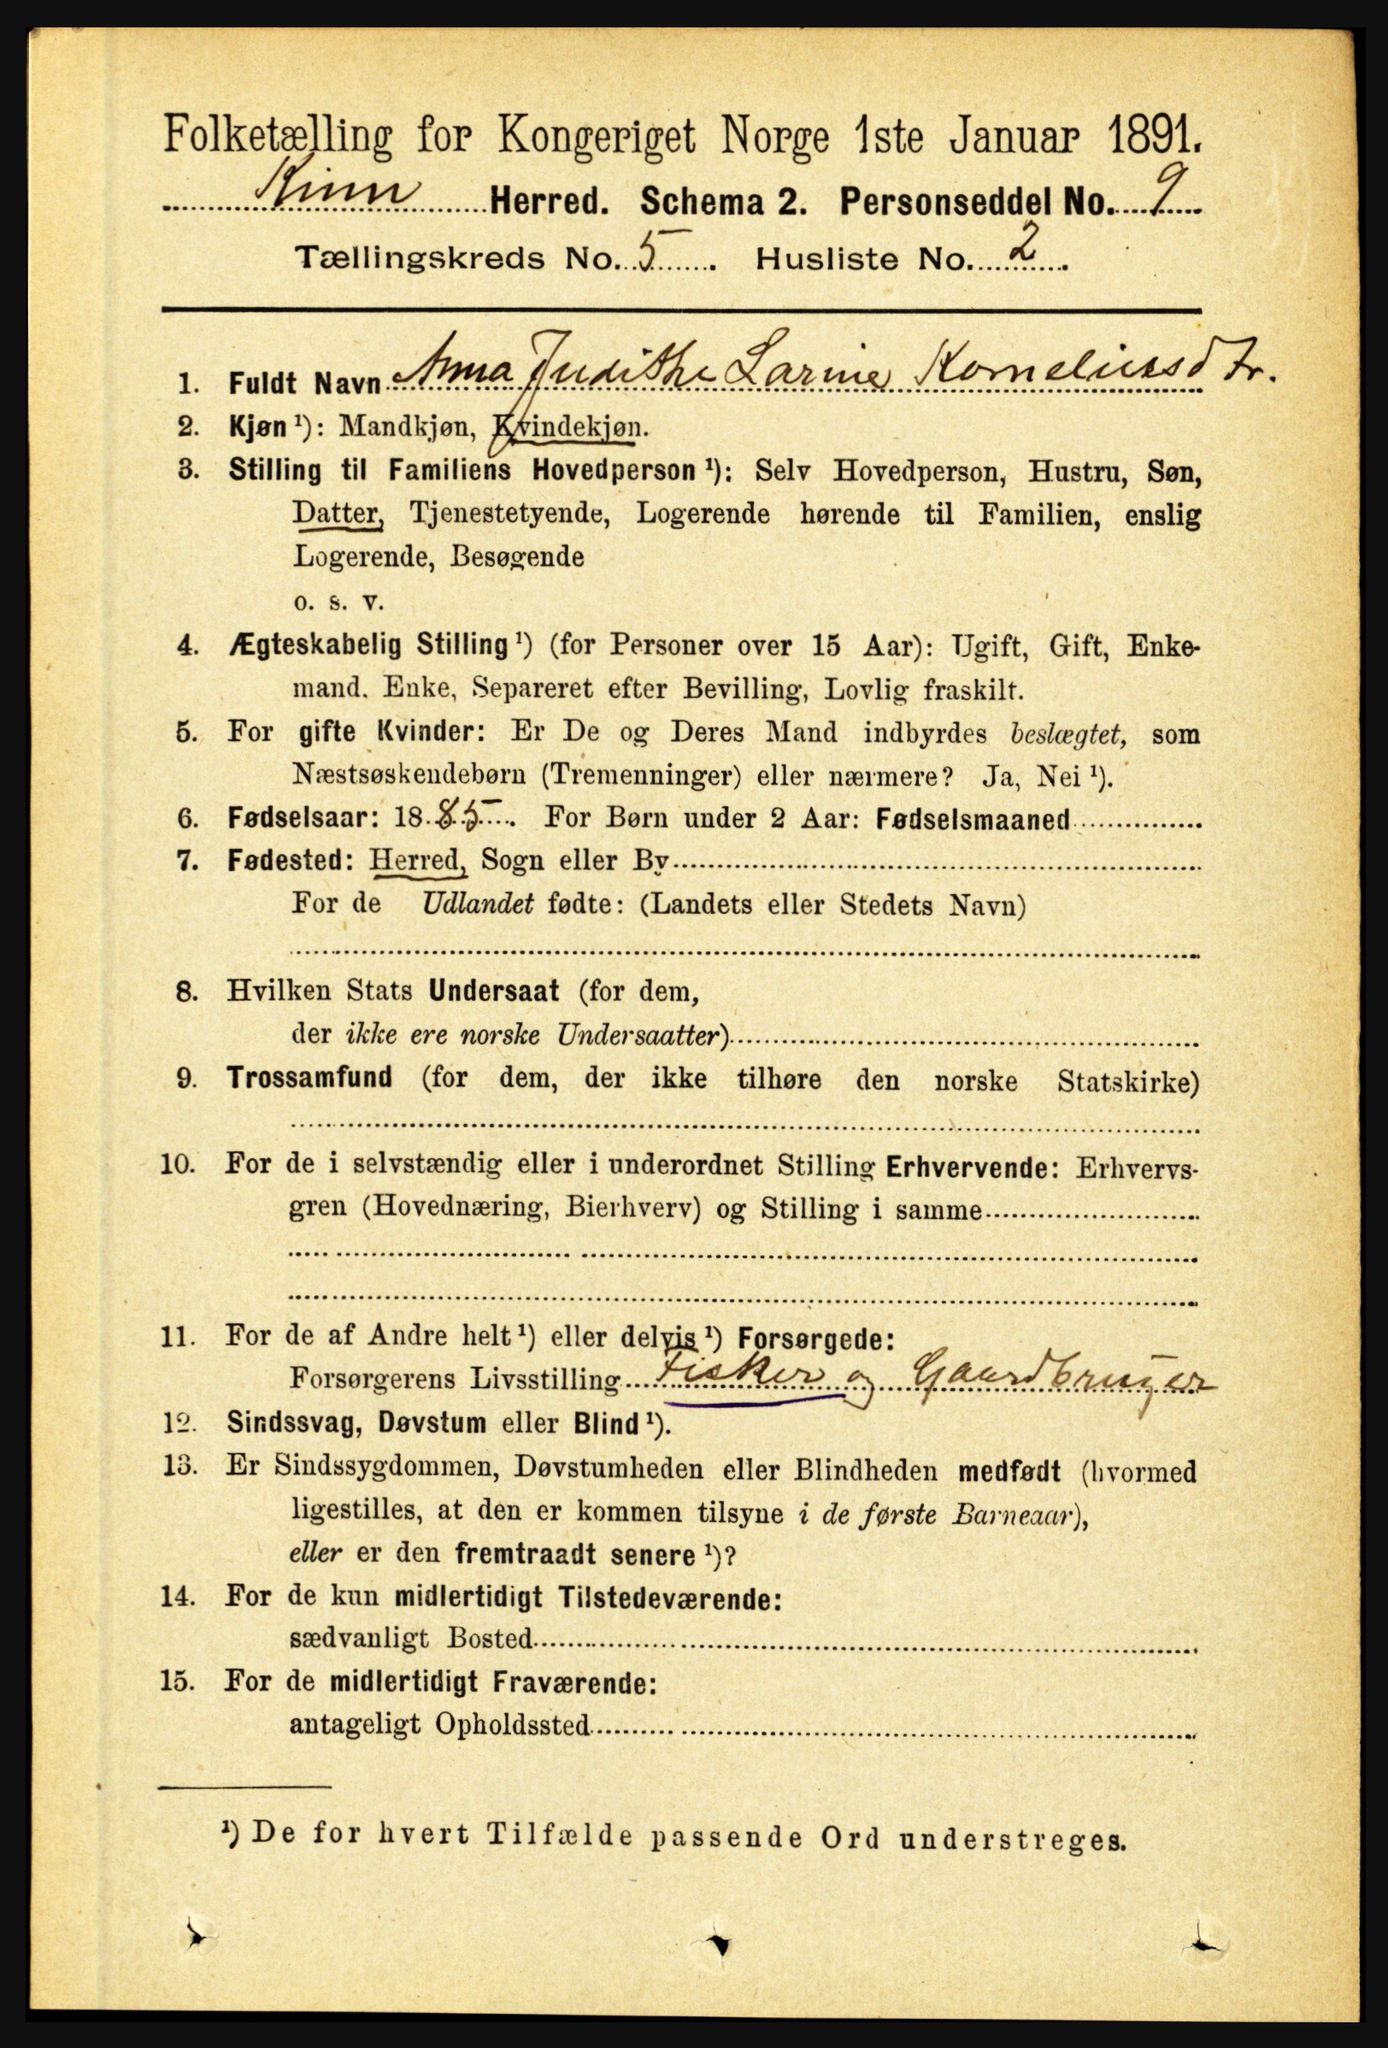 Folketælling for Kongeriget Norge 1ste Januar 1891.
Kinn Herred. Schema 2. Personseddel No. 9
Tællingskreds No. 5. Husliste No. 2.
1. Fuldt Navn Anna Judithe Larine Korneliusdtr.
2. Kjøn ¹): Mandkjøn, Kvindekjøn.
3. Stilling til Familiens Hovedperson ¹): Selv Hovedperson, Hustru, Søn,
Datter, Tjenestetyende, Logerende hørende til Familien, enslig
Logerende, Besøgende
o. s. v.
4. Ægteskabelig Stilling ¹) (for Personer over 15 Aar): Ugift, Gift, Enke-
mand. Enke, Separeret efter Bevilling, Lovlig fraskilt.
5. For gifte Kvinder: Er De og Deres Mand indbyrdes beslægtet, som
Næstsøskendebørn (Tremenninger) eller nærmere? Ja, Nei ¹).
6. Fødselsaar: 1885. For Børn under 2 Aar: Fødselsmaaned
7. Fødested: Herred, Sogn eller By
For de Udlandet fødte: (Landets eller Stedets Navn)
8. Hvilken Stats Undersaat (for dem,
der ikke ere norske Undersaatter)
9. Trossamfund (for dem, der ikke tilhøre den norske Statskirke)
10. For de i selvstændig eller i underordnet Stilling Erhvervende: Erhvervs-
gren (Hovednæring, Bierhverv) og Stilling i samme
11. For de af Andre helt ¹) eller delvis ¹) Forsørgede:
Forsørgerens Livsstilling Fisker og Gaardbruger
12. Sindssvag, Døvstum eller Blind ¹).
13. Er Sindssygdommen, Døvstumheden eller Blindheden medfødt (hvormed
ligestilles, at den er kommen tilsyne i de første Barneaar),
eller er den fremtraadt senere ¹)?
14. For de kun midlertidigt Tilstedeværende:
sædvanligt Bosted
15. For de midlertidigt Fraværende:
antageligt Opholdssted
¹) De for hvert Tilfælde passende Ord understreges.